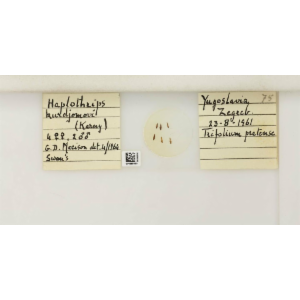 Haplothrips
(Karny)
4♀♀. 2♂♂
G.D. Morison det. 4/1962
Yugoslavia 75
Zagreb.
23-8-1961
Trifolium pratense